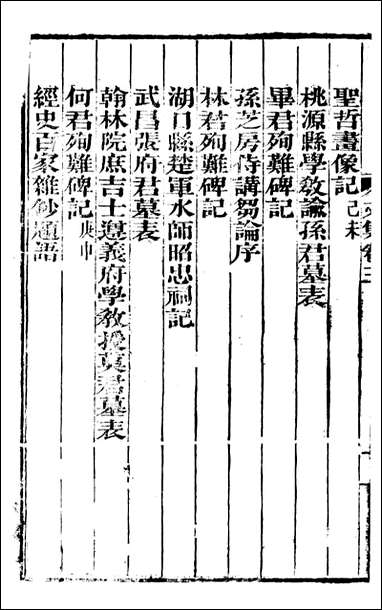 文集卷三
聖哲畫像記己未
桃源縣學教諭孫君墓表
畢君殉難碑記
孫芝房侍講芻論序
林君殉難碑記
湖口縣楚軍水師昭忠祠記
武昌張府君墓表
翰林院庶吉士遵義府學教授莫君墓表
何君殉難碑記庚申
經史百家雜鈔題語